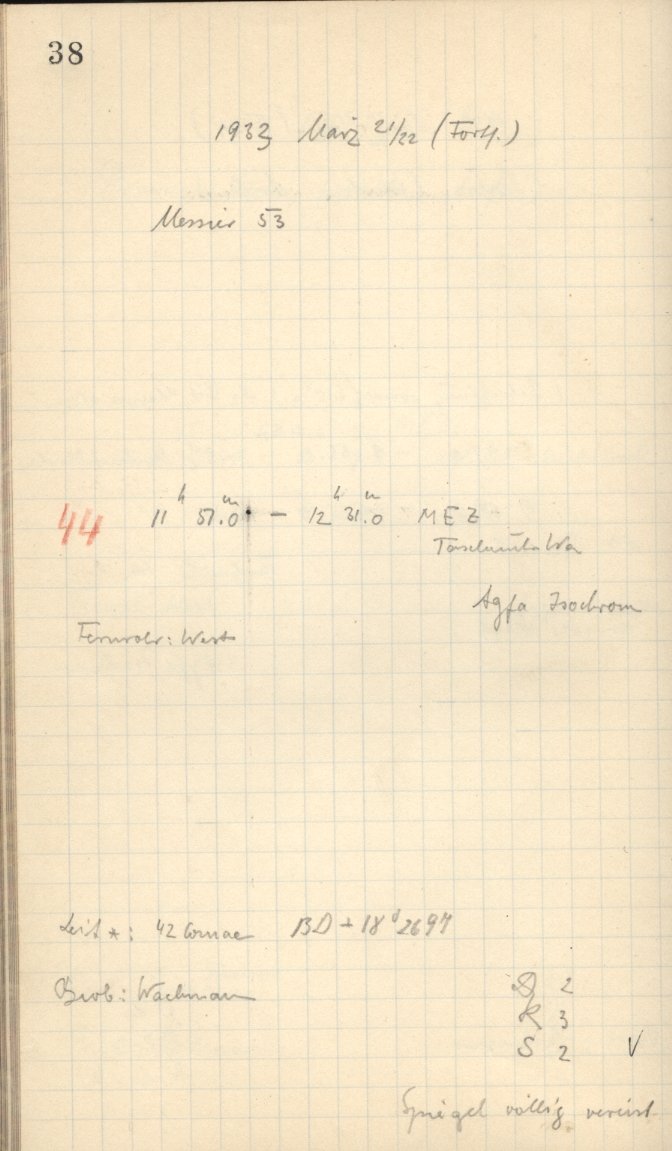 38
1933 März 21/22 (Forts.)
Messier 53
44 11h 51.0m – 12h 31.0m MEZ
Taschenuhr Wa
Agfa Isochrom
Fernrohr: West
Leit *: 42 Comae BD + 18d 2697
Beob: Wachmann
D 2
R 3
S 2 V
Spiegel völlig vereist